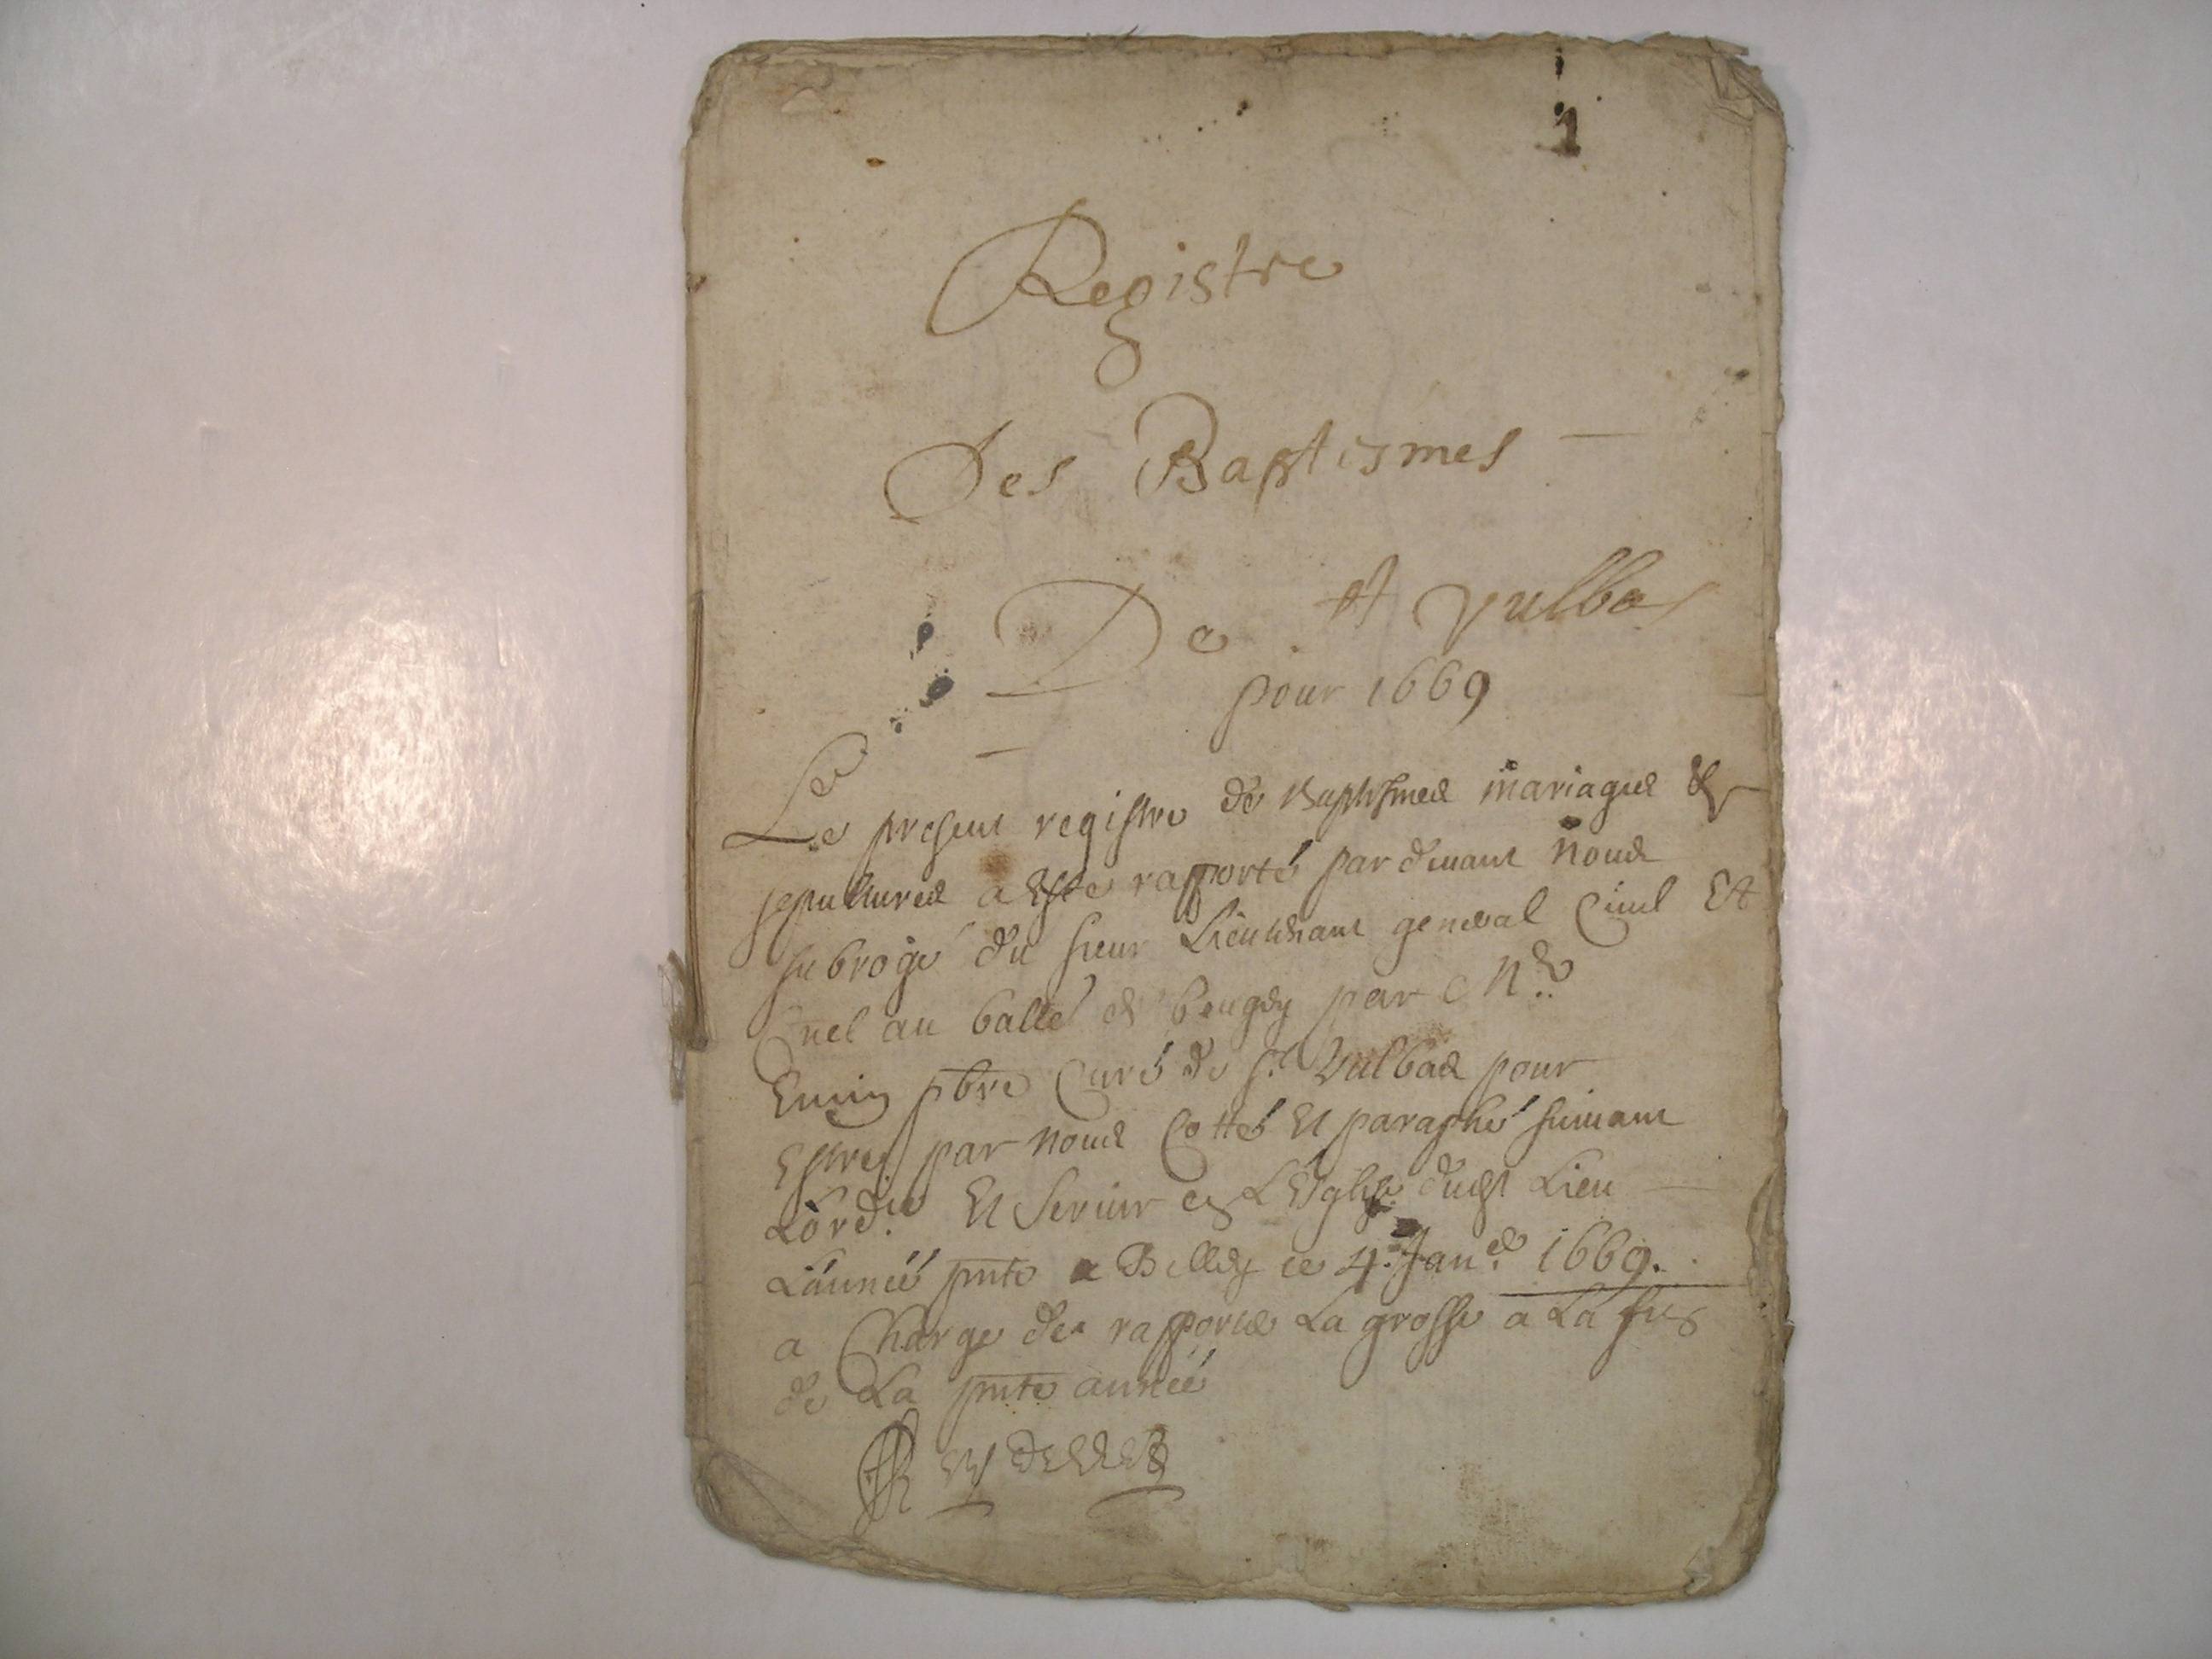 1
Registre
Des Baptismes
De st vulbas
pour 1669
Le present registre de Baptesmes mariages &
sepultures a Este rapporté pardeuant nous
subrogé du sieur Lieutenant general Ciuil Et
Cnel au balle de beugey par Mre
pbre Curé de st Vulbas pour
Estre par nous Cotté Et paraphé suiuant
Lordce Et seruir en LEglise dudt Lieu
Lannéé pnte a Belley ce 4e Janer 1669.
a Charge de rapporter La grosse a La fin
de La pnte annéé